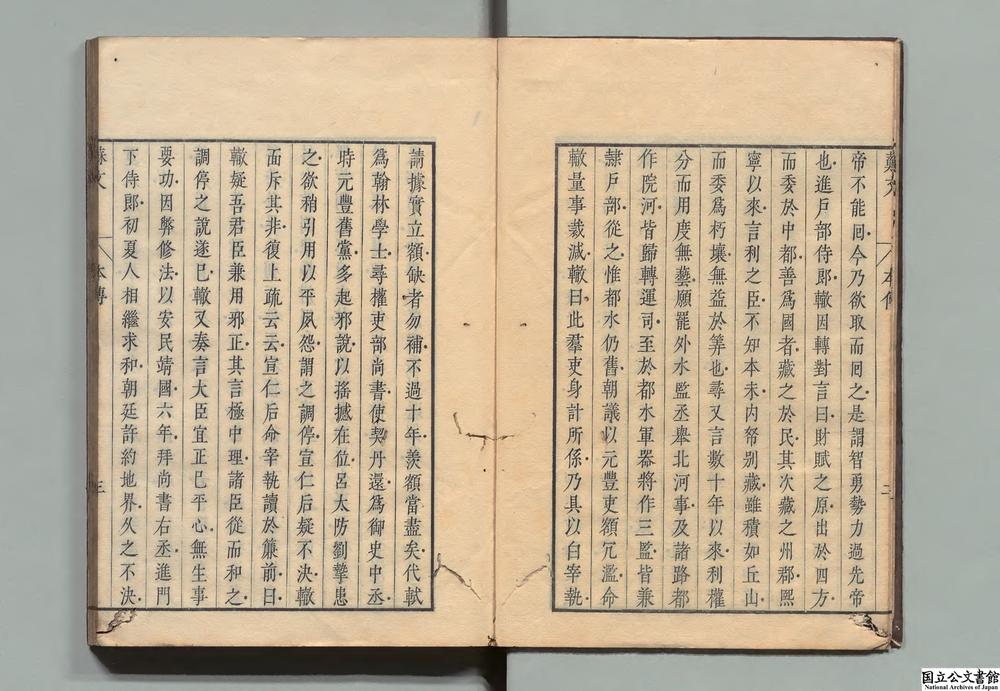 帝不能回今乃欲取而回之是謂智勇勢力過先帝
也進戶部侍郎轍因轉對言曰財賦之原出於四方
而委於中都善爲國者藏之於民其次藏之州郡熙
寧以來言利之臣不知本末内帑别藏雖積如丘山
而委爲朽壤無益於筭也尋又言數十年以來利權
分而用度無藝願罷外水監丞舉北河事及諸路都
作院河皆歸轉運司至於都水軍器將作三監皆兼
隷戶部從之惟都水仍舊朝議以元豐吏額冗濫命
轍量事裁減轍曰此羣吏身計所係乃具以白宰執
請據實立額缺者勿補不過十年羡額當盡矣代軾
爲翰林學士尋權吏部尚書使契丹還爲御史中丞
時元豐舊黨多起邪說以搖撼在位呂太防劉摯患
之欲稍引用以平夙怨謂之調停宣仁后疑不決轍
面斥其非復上疏云云宣仁后命宰執讀於簾前曰
轍疑吾君臣兼用邪正其言極中理諸臣從而和之
調停之說遂已轍又奏言大臣宜正已平心無生事
要功因弊修法以安民靖國六年拜尚書右丞進門
下侍郎初夏人相繼求和朝廷許約地界久之不決
本傳
三
国立公文書館
National Archives of Japan